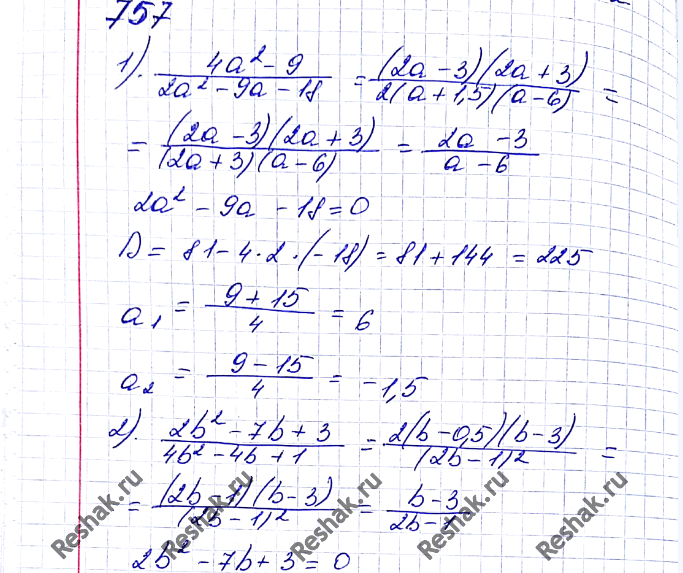 757
1). (4a² - 9)/(2a² - 9a - 18) = ((2a - 3)(2a + 3))/(2(a + 1,5)(a - 6)) =
= ((2a - 3)(2a + 3))/((2a + 3)(a - 6)) = (2a - 3)/(a - 6)
2a² - 9a - 18 = 0
D = 81 - 4·2·(-18) = 81 + 144 = 225
a₁ = (9 + 15)/4 = 6
a₂ = (9 - 15)/4 = -1,5
2). (2b² - 7b + 3)/(4b² - 4b + 1) = (2(b - 0,5)(b - 3))/((2b - 1)²) =
= ((2b - 1)(b - 3))/((2b - 1)²) = (b - 3)/(2b - 1)
2b² - 7b + 3 = 0
Reshak.ru Reshak.ru Reshak.ru Reshak.ru Reshak.ru